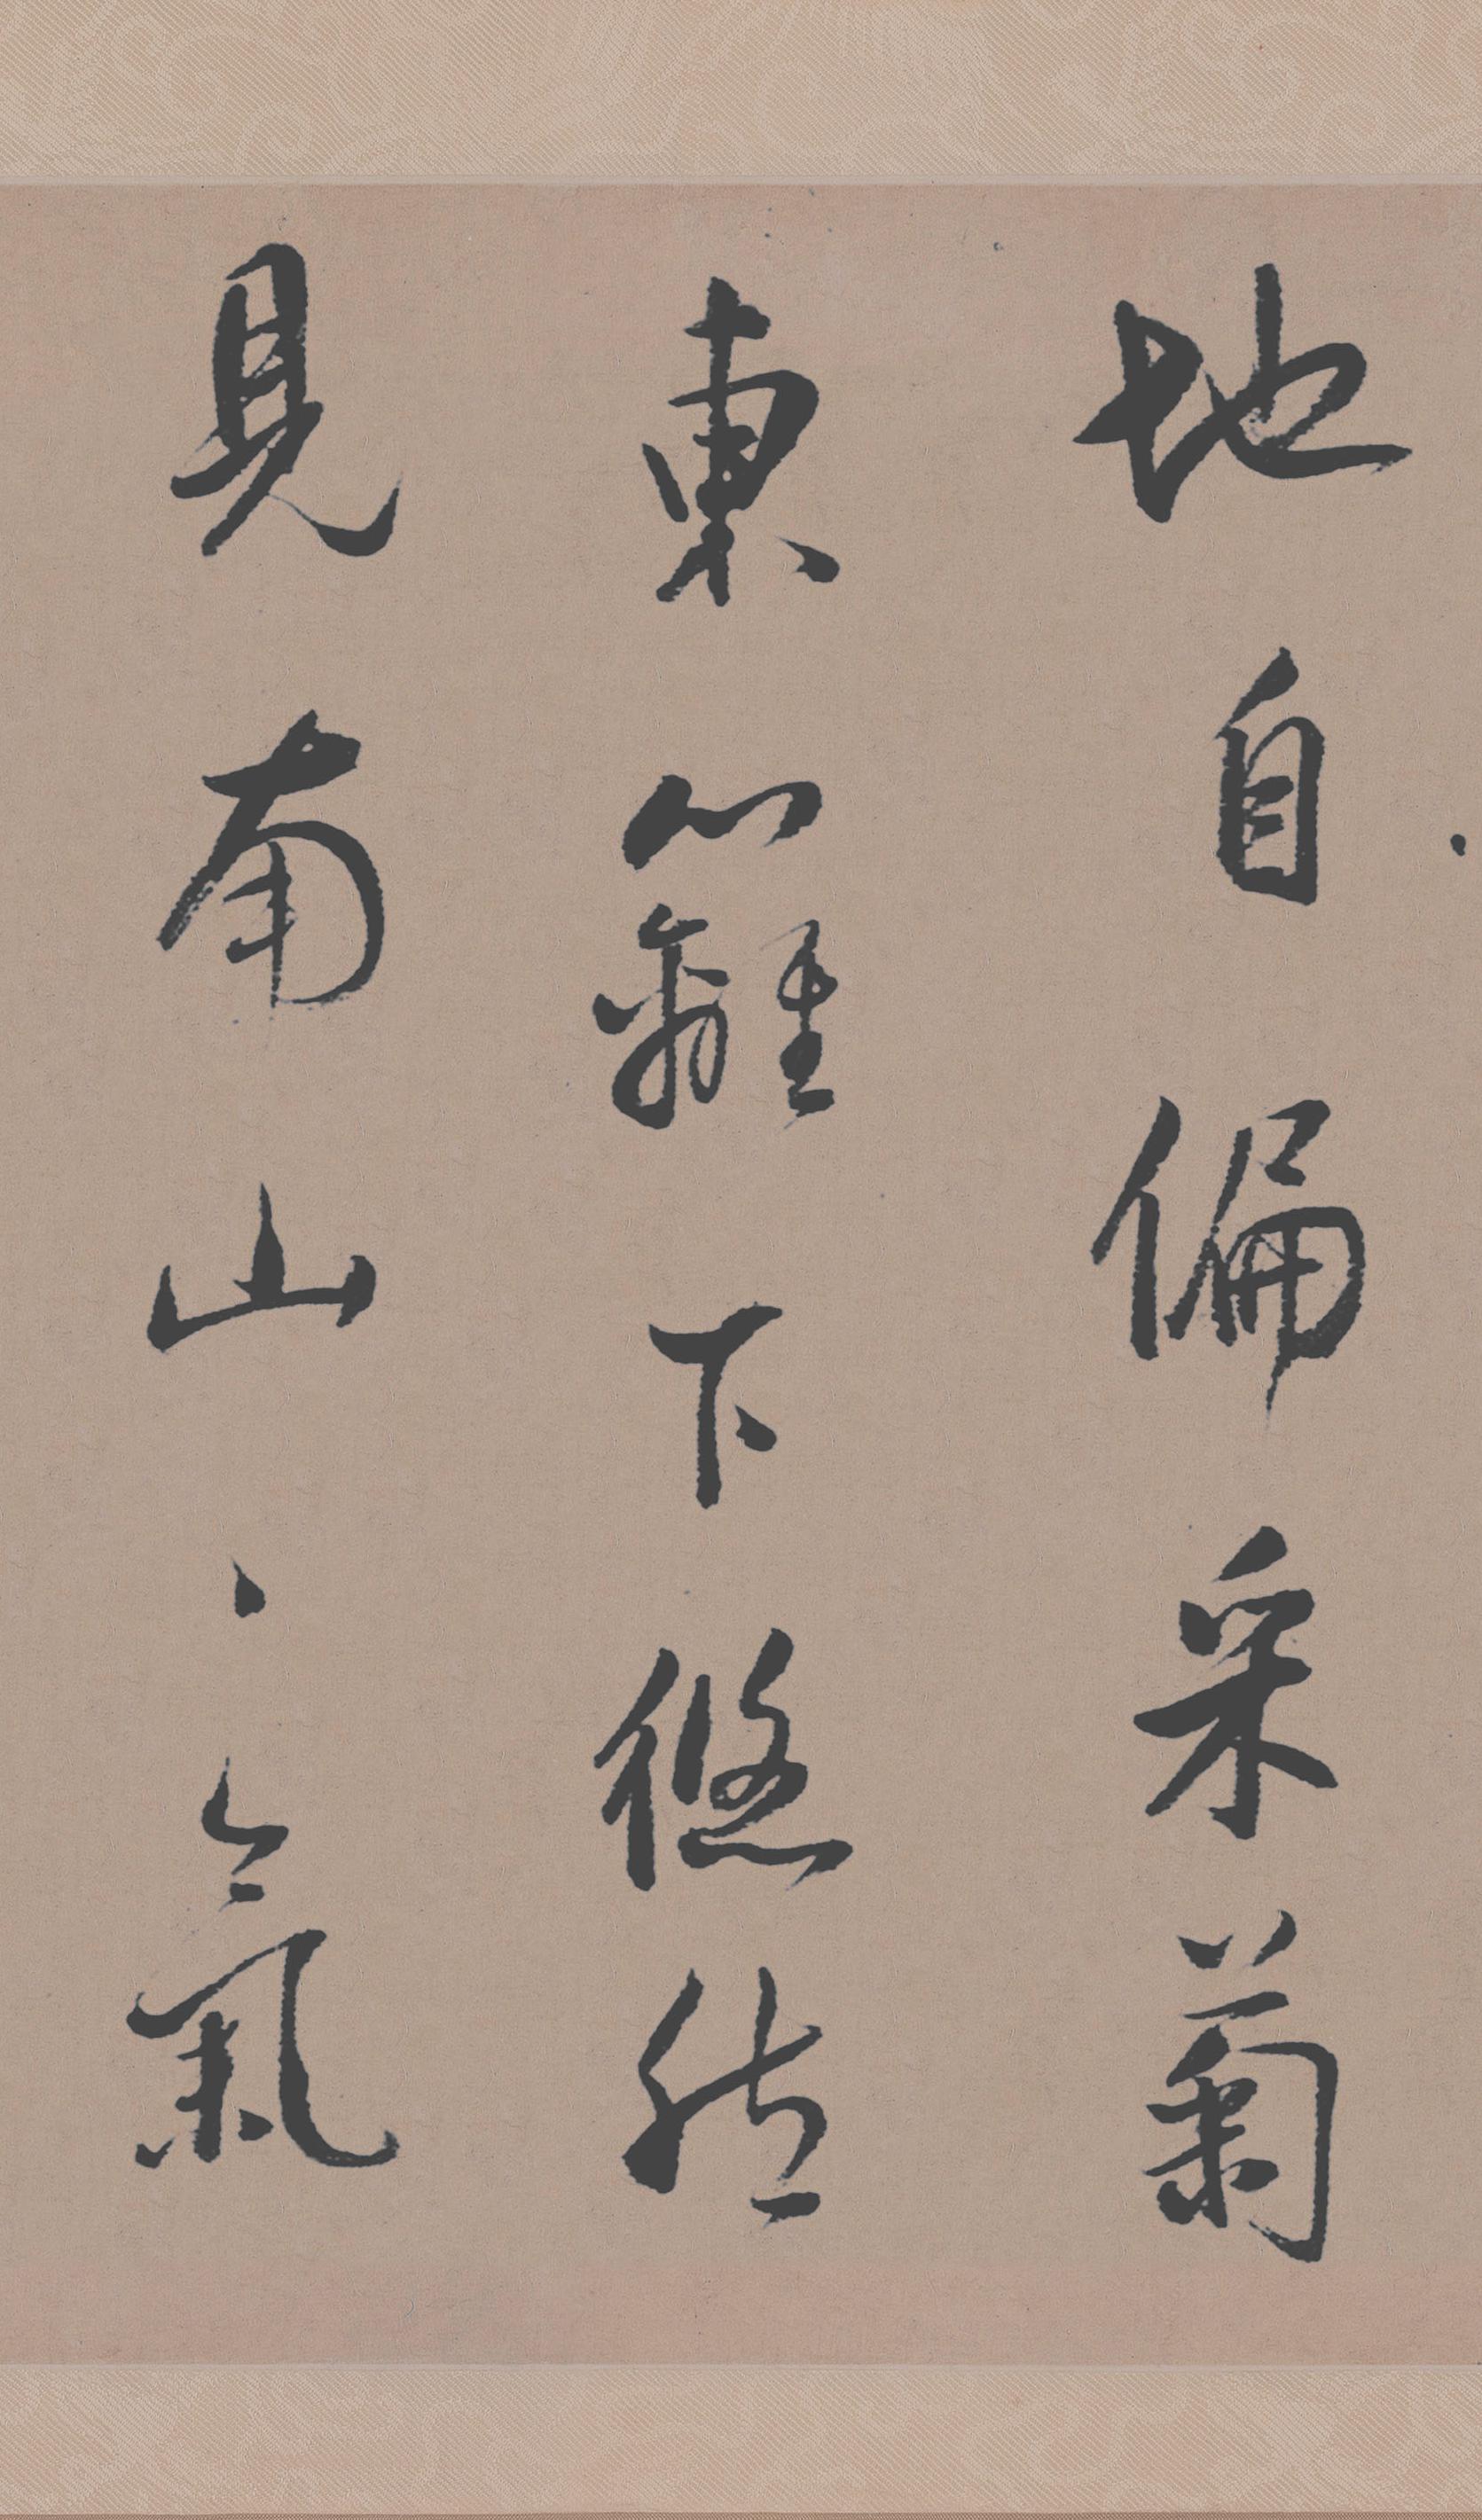 地自偏采菊
東籬下悠然
見南山々氣